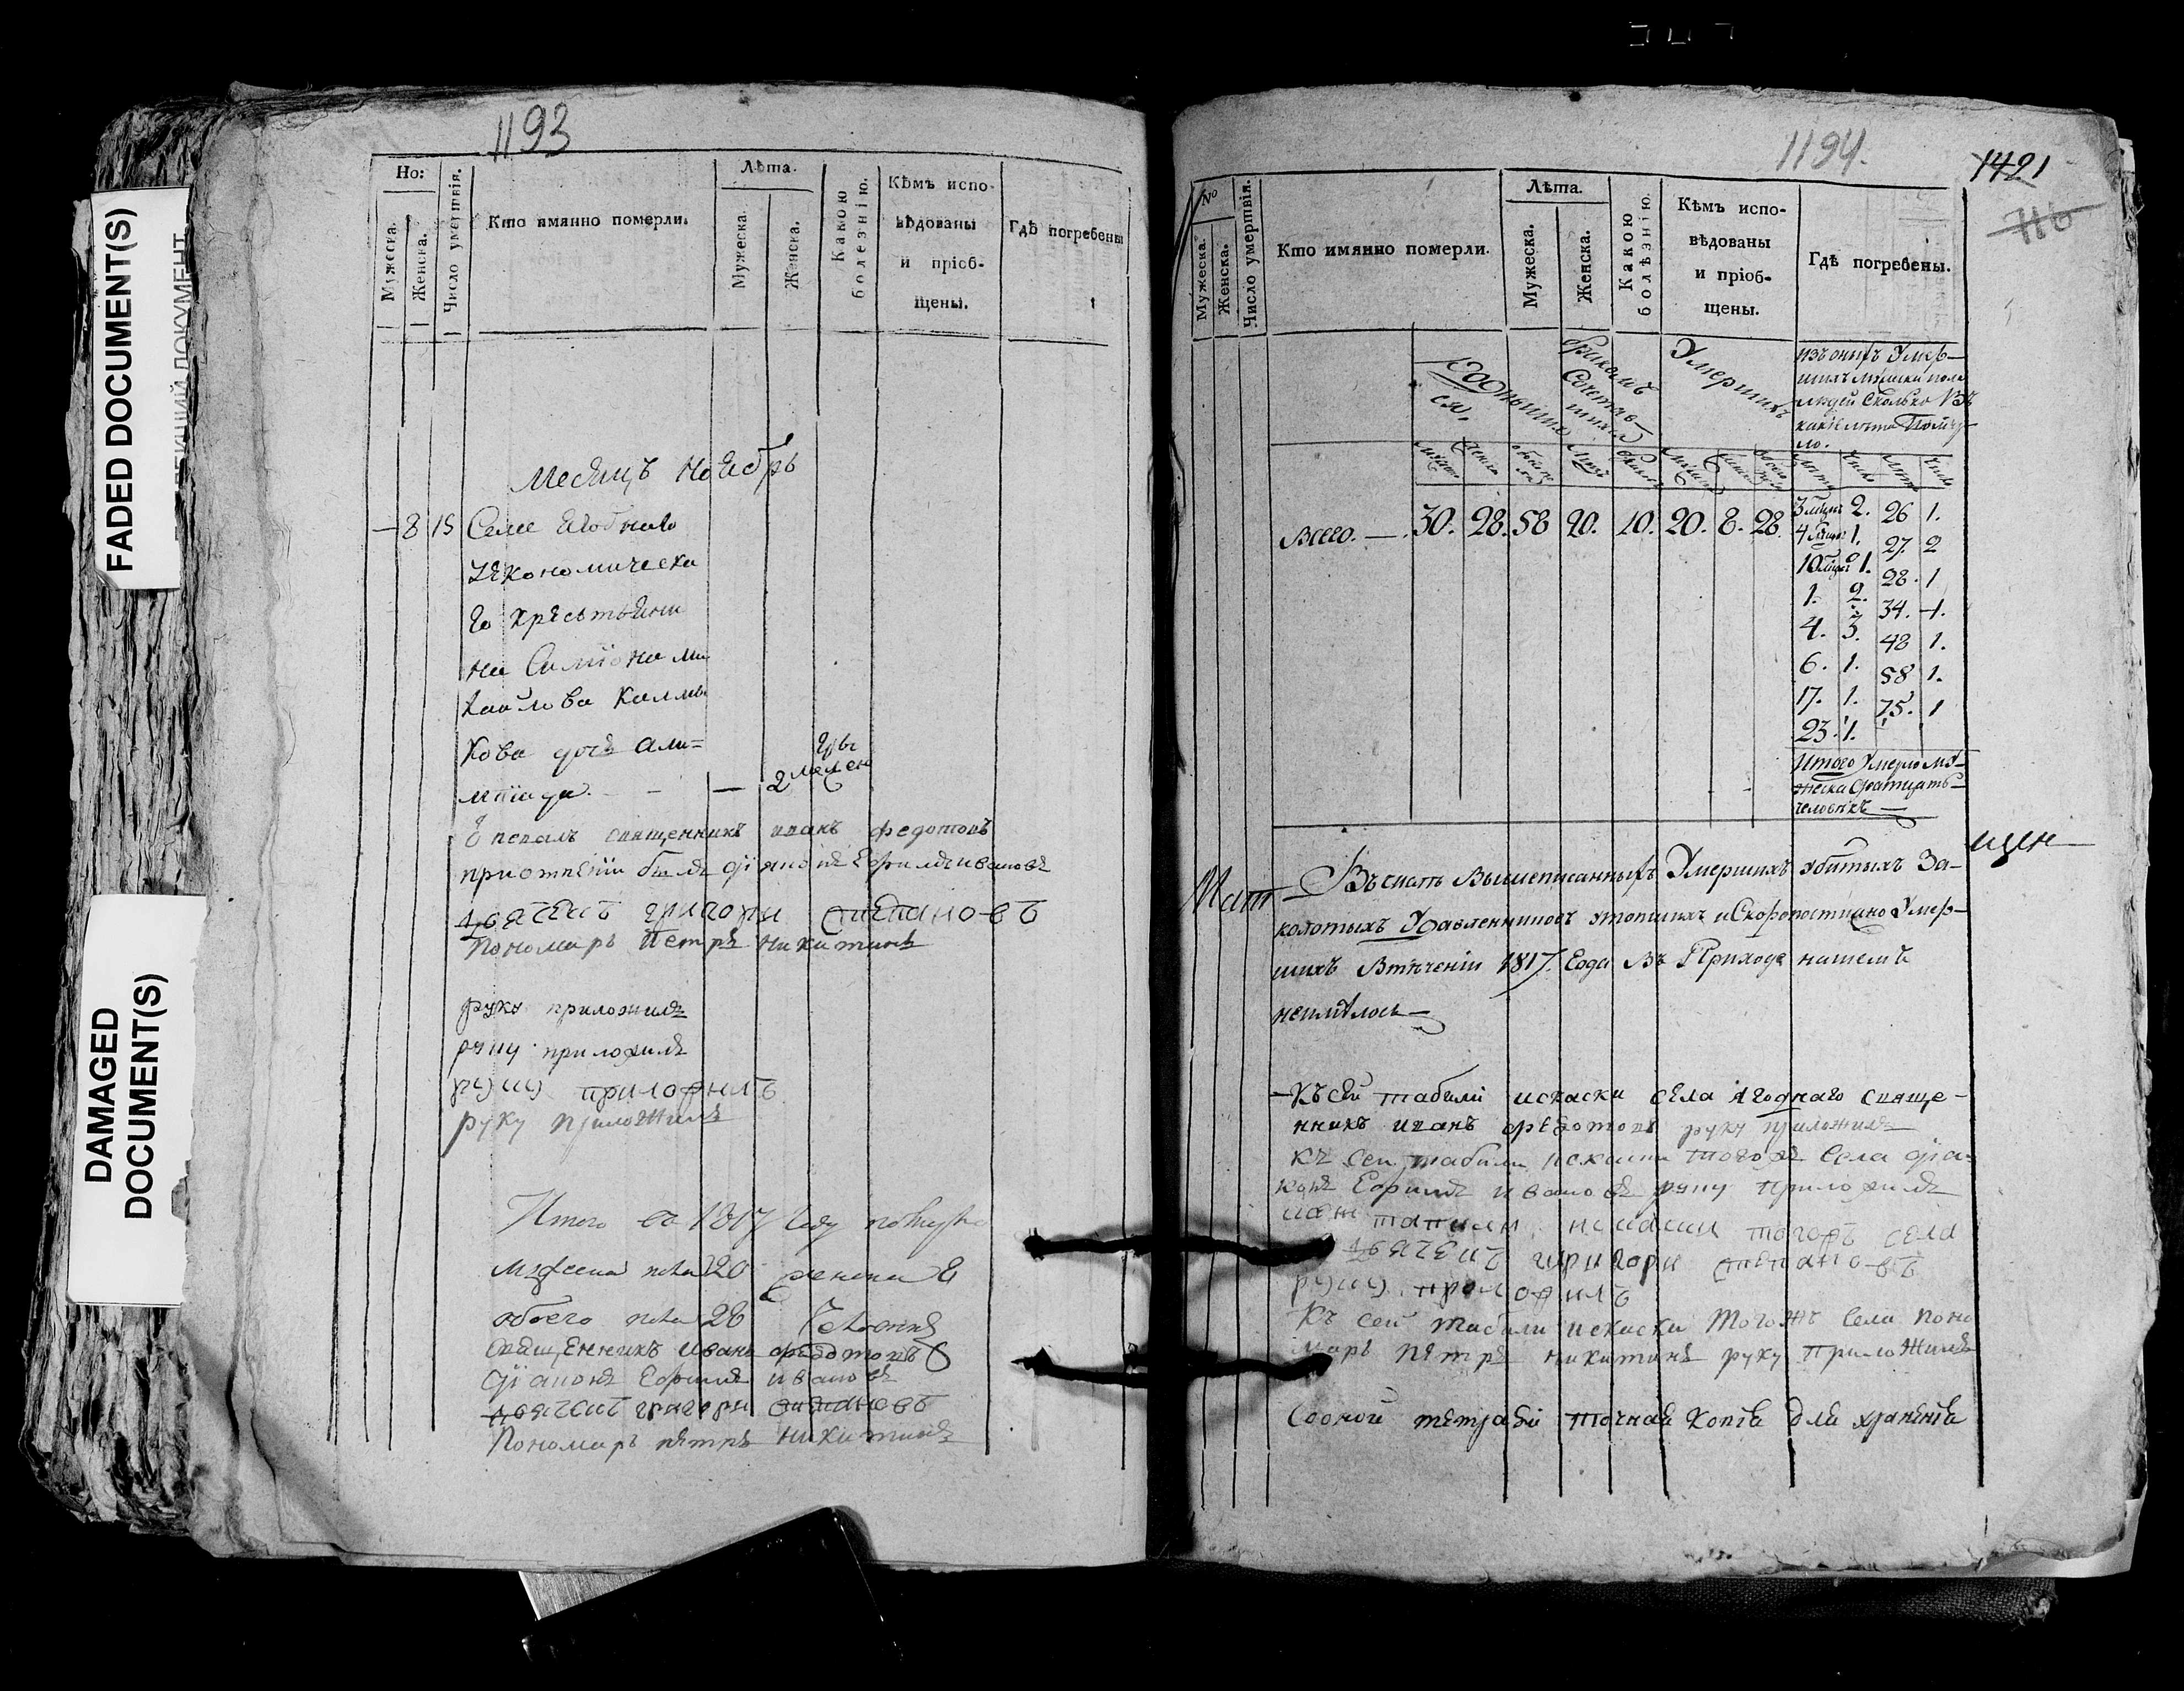 FADED DOCUMENT(S)
DAMAGED
DOCUMENT(S)
1193
Но:
Мужеска.
Женска.
Число умертвія.
Кто имянно померли.
Лѣта.
Мужеска.
Женска.
Какою
болезнію.
Кѣмъ испо-
вѣдованы
и пріоб-
щены.
Гдѣ погребены
Месяцъ ноябрь
— 8 15 Села Ягоднаго
Економическа
го крестьяни
на Симиона ми
хайлова Калмы
кова дочь али=
мпіада. - - — 2
Отпевалъ священникъ иванъ федотовъ
приотпѣніи былъ діяконъ Ефимъ ивановъ
дьячекъ григори степановъ
Пономарь Петръ никитинъ
руку приложилъ
руку приложилъ
руку приложилъ
руку приложилъ
Итого въ 1817 году
мужеска пола 20 женска 8
обоего пола 28 Человекъ
священникъ иванъ федотовъ
діаконъ Ефимъ ивановъ
дьячекъ григори степановъ
Пономарь петръ никитинъ
1194.
1421
716
№
Мужеска.
Женска.
Число умертвія.
Кто имянно померли.
Лѣта.
Мужеска.
Женска.
Какою
болѣзнію.
Кѣмъ испо-
вѣдованы
и пріоб-
щены.
Гдѣ погребены.
Родивших
ся.
бракомъ
Сочетав-
шихся
Умершихъ
изъ оныхъ Умер-
шихъ мужска пола
людей Сколько въ
какие лета Помер-
ло.
Всего. — 30. 28. 58 20. 10. 20. 8. 28.
3 2. 26 1.
4 1. 27. 2
10 1. 28. 1
1. 2. 34. 1.
4. 3. 48 1.
6. 1. 58 1.
17. 1. 75. 1
23. 1.
Итого Умерло му-
жеска Дватцать
человѣкъ —
Въ вышеписанныхъ Умершихъ убитыхъ За-
колотыхъ Удавленниковъ утопшихъ и Скоропостижно Умер-
шихъ Втѣченіи 1817. Года Въ Приходе нашемъ
неимѣлось —
Къ сей табели искаски села Ягоднаго свяще-
нникъ иванъ федотовъ руку приложилъ
къ сей табели искаски тогожъ села діа-
конъ Ефимъ ивановъ руку приложилъ
табили искаски тогожъ села
дьячекъ григори степановъ
руку приложилъ
Къ сей табели искаски тогожъ села Поно
марь Петръ никитинъ руку приложилъ
Соной тетради точная копія для храненія